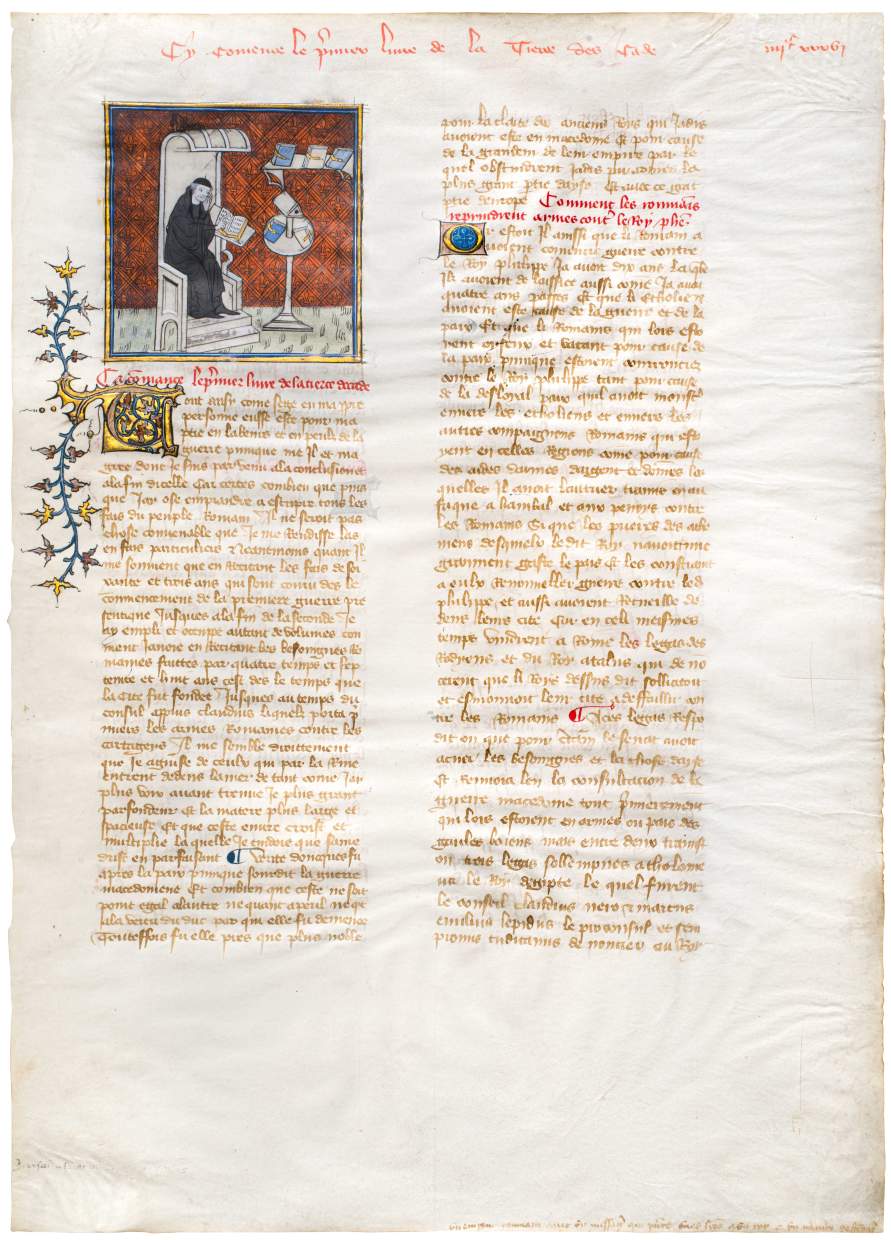 Cy comence le p̃mier livre de la Tierce decade
iiijc xxxvi
Cy cõmance le p̃mier livre de la tierce decade
Tout ausy come se ge en ma ppre
persomne eusse este pour ma
ptie en labeur et en peril de la
guerre punique me Il et ma
gree dont Je suis par venu a la conclusion et
a la fin dicelle Car certes combien que puis
que Jay ose emprandre a escripre tous les
fais du peuple Romain Il ne seroit pas
chose convenable que Je me rendisse las
en fais particuliers Neantmoins quant Il
me sonvient que en Recitant les fais de soi
xante et trois ans qui sont couru des le
commencement de la premiere guerre pu
nique Jusques a la fin de la seconde Je
ay empli et occupe autant de volumes con
ment Javoie en Recitant les besoingnes Ro
maines faittes par quatre temps et sep
tente et huit ans cest des le temps que
la Cite fut fondee Jusques au temps du
consul appius claudius liquelz porta p̃
miers les armes Romaines contre les
cartagiens Il me semble droittement
que Je aguise de ceulx qui par la Rive
entrent dedens la mer de tant come Jay
plus voix avant treuve Je plus grant
parfondeur Et la matere plus large et
spacieuse Et que ceste euvre croist et
multiplie la quelle Je cuidoie que
en parfaisant Verite doncques fu
apres la paix punique sourdit la guerre
macedoniene Et combien que ceste ne soit
point egal a lautre ne quant a peril ne q̃t
a la vertu du duc par qui elle fu demence
Toutesfois fu elle pres que plus noble
pour la clarte des anciens Roys qui Jadis
avoient este en macedone Et pour cause
de la grandeur de leur empire par le
quel obstindrent Jadis
plus grant ptie dayse Et avec ce grãt
ptie deurope Comment les rommãis
reprindrent armes contr̃ le Roy phẽ
Or estoit Il aussi que li Romain a
voient commencie guerre contre
le Roy philippe Ja avoit dix ans la q̃le
Ilz avoient delaissee aussi come Ja avoit
quatre ans passes Et que li Etholien
avoient este cause de la guerre et de la
paix Et que li Romains qui lors esto
ient oyseux et vacant pour cause de
la paix punique estoient
contre le Roy philippe tant pour cause
de la desloyal paix quil avoit monst̃
envers les etholiens et envers les
autres compaignons Romains qui esto
ient en celles Regions come pour cause
des aides darmes dargent et domes les
quelles Il avoit lautrier transmis en au
frique a hanibal et aux penyens contre
les Romains Si que les prieres des athe
niens desquelx le dit Roy
griement gaste le pais Et les constraint
a eulx Renouveller guerre contre led
philippe et aussi avoient Recueille de
dens leurs cite Car en celi meismes
temps vindrent a Rome les legas des
Rodyens et du Roy atalus qui de no
cerent que li Roys dessus dit sollicitoit
et esmouvoit leur cite a deffaillir con
tre les Romains A ces legas Respõ
dit on que pour le senat avoit
a cuer les besoingnes et la chose dayse
Et Renvoia len la consultation de la
guerre macedone tout p̃mierement
qui lors estoient en armes ou pais des
gaules boiens mais entre deux transist
on trois legas sollempnes a tholome
us le Roy degipte le quel furent
le conseil Claudius nero et marcus
emilius lepidus le proconsul et sem
pronius tuditanus de noncier au Roy